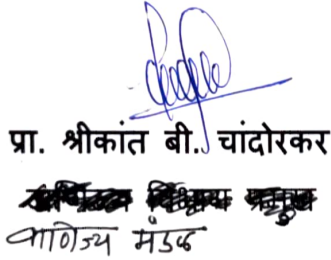 प्रा. श्रीकांत बी. चांदोरकर
वाणिज्य मंडळ